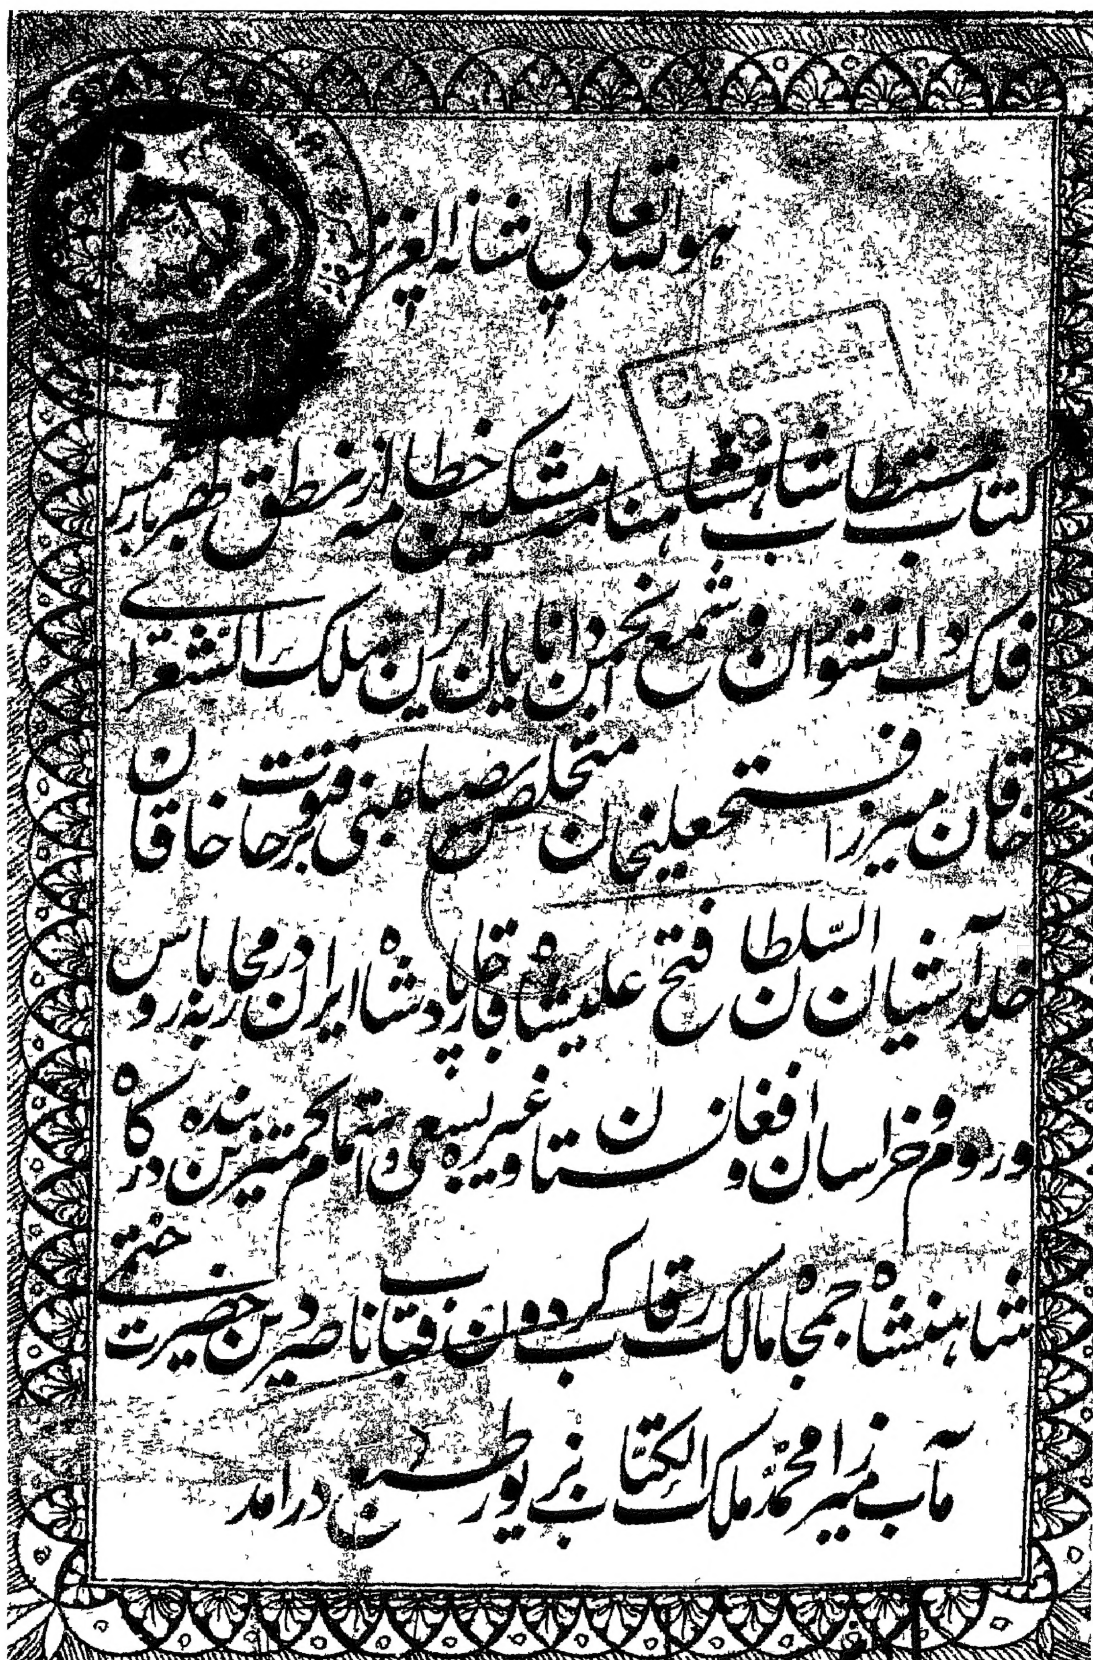 هو الله تعالی شانه العزیز
کتاب مستطاب شاهنشاهنامه مشکین ختامه از منطق
فلک دانشوران و شمع انجمن دانایان ایران ملک الشعرای
خاقان میرزا فتحعلیخان متخلص بصبا مبنی بر فتوحات خاقان
خلد آشیان السلطان فتح علیشاه قاجار پادشاه ایران در محاربات روس
و روم و خراسان و افغانستان و غیره بسعی و اهتمام کمترین بنده درگاه
شاهنشاه جمجاه مالک رقاب گردون قباب ناصر دین حضرت ختمی
مآب میرزا محمد ملک الکتاب بزیور طبع درآمد
Checked
19